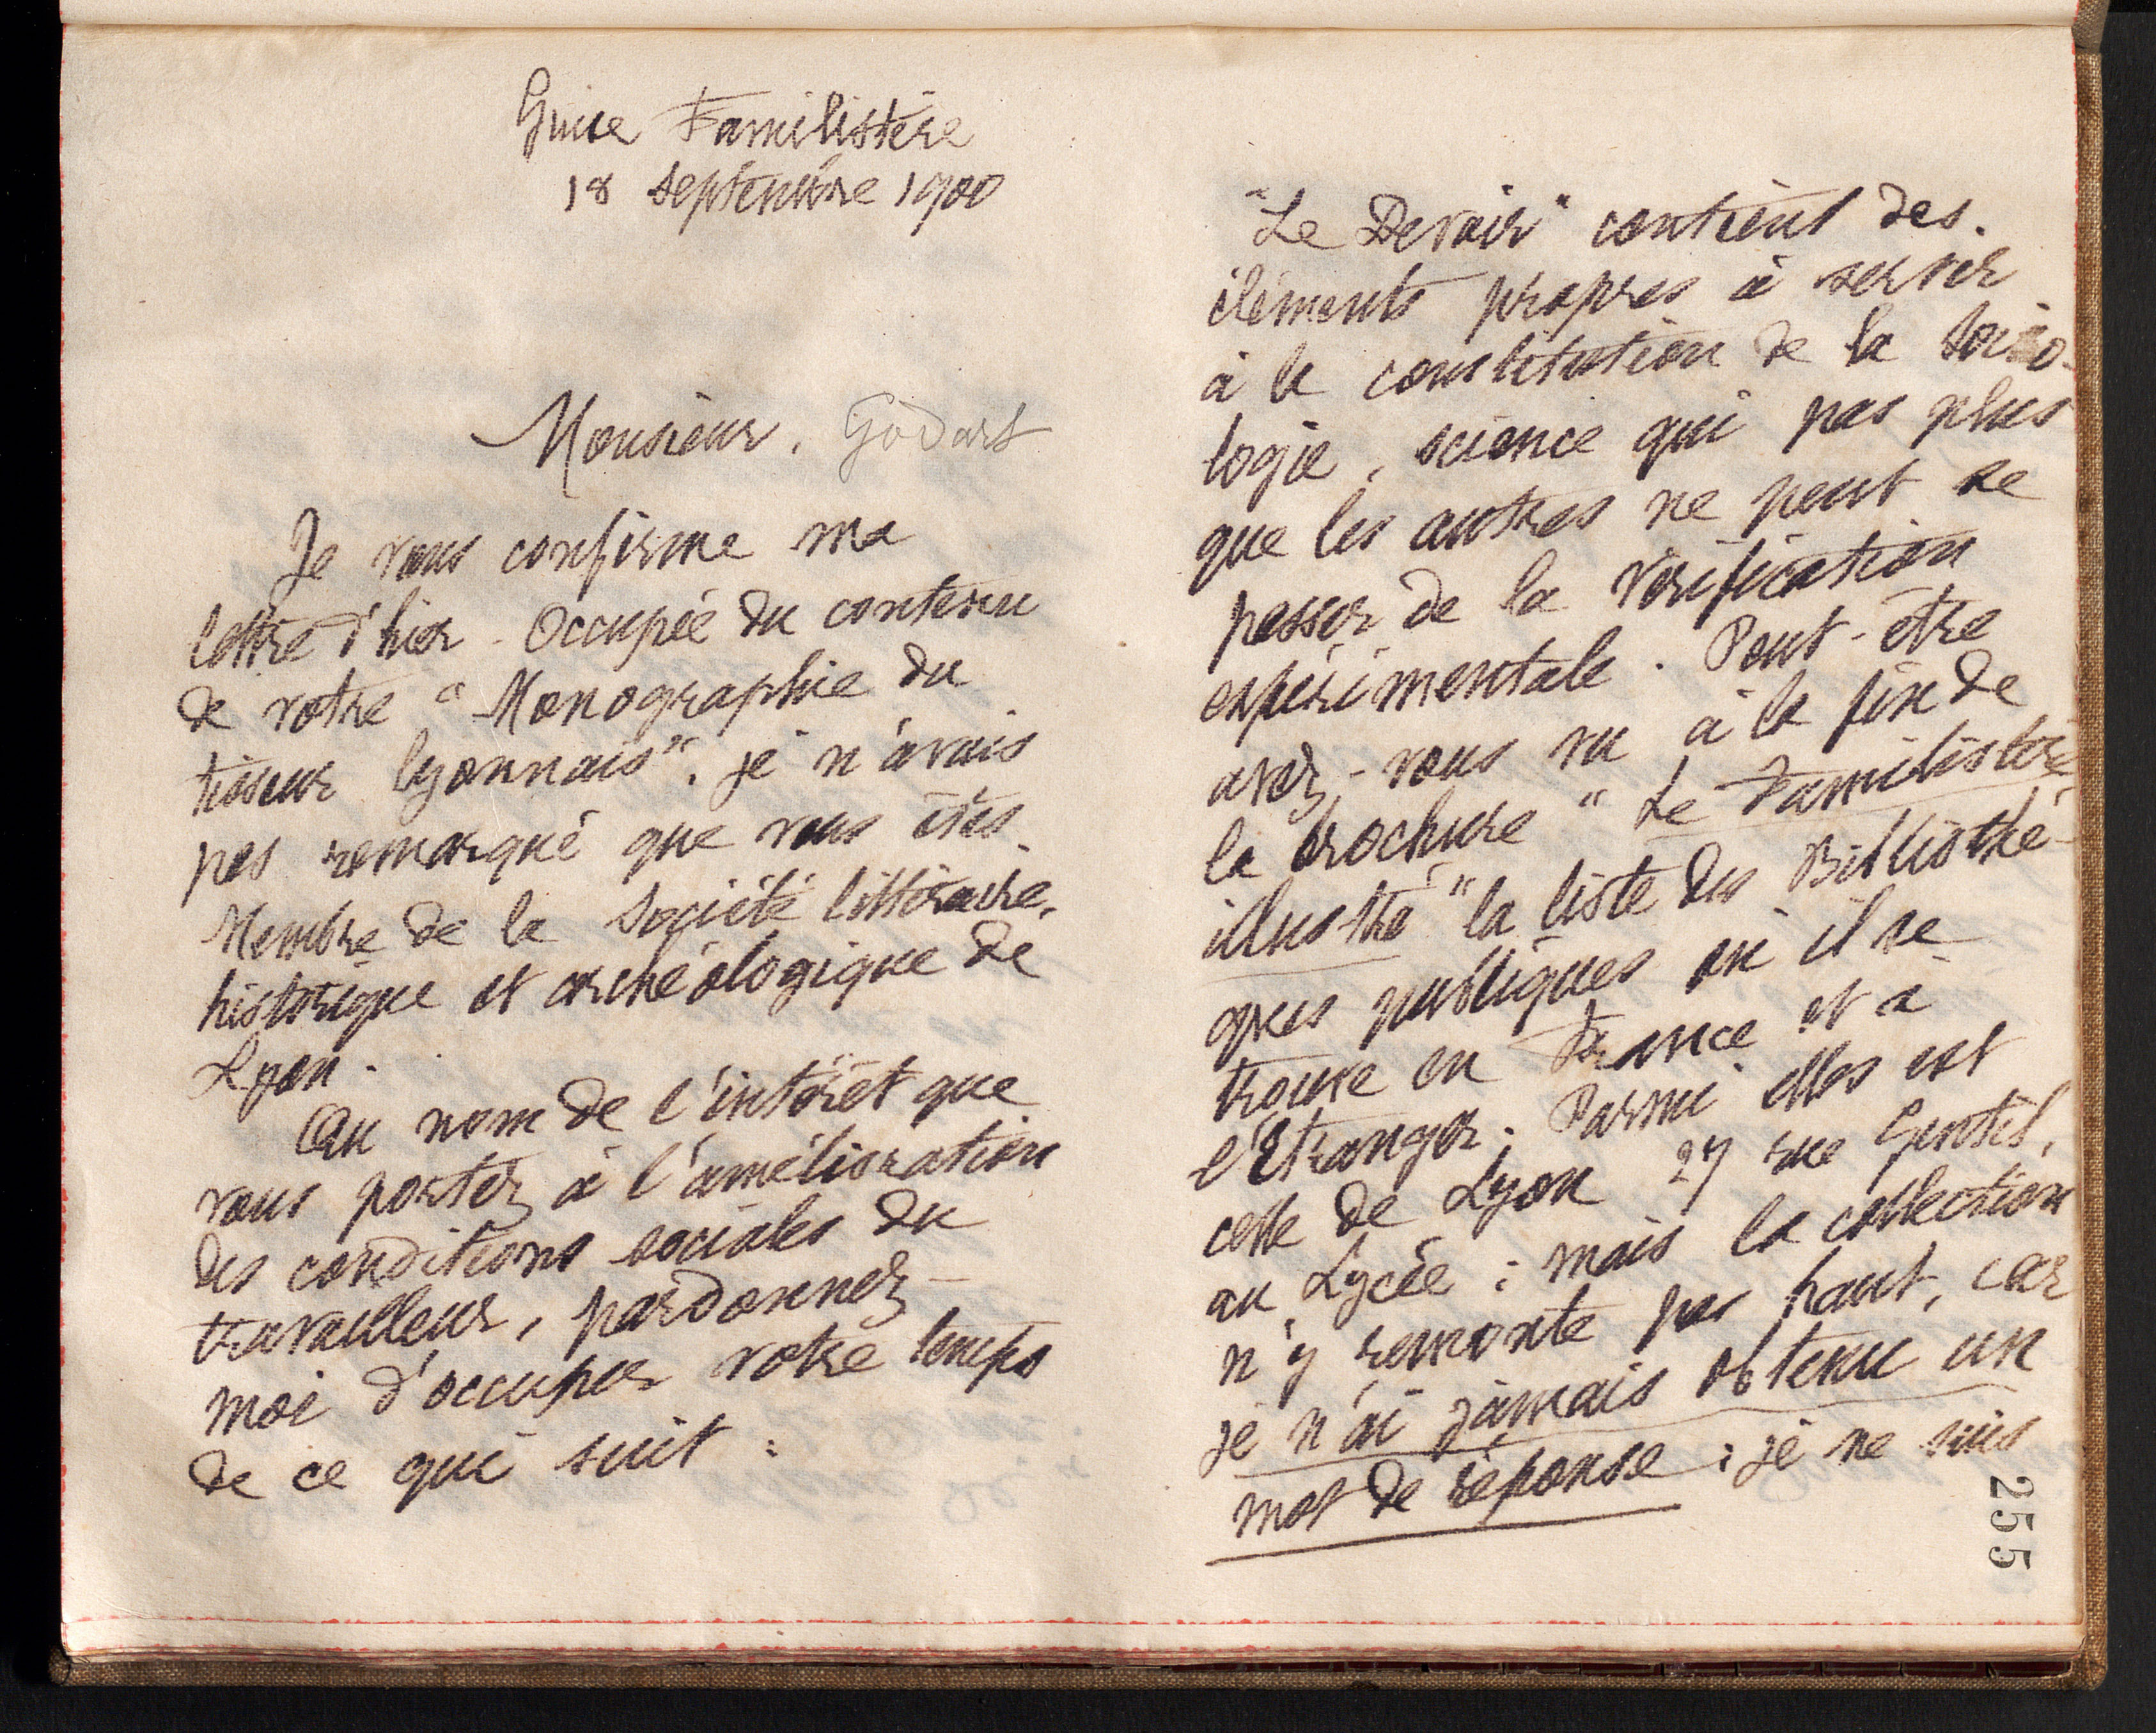 Guise Familistère
18 septembre 1900
Monsieur, Godart
Je vous confirme ma
lettre d'hier. Occupée du contenu
de votre "Monographie du
tisseur lyonnais", je n'avais
pas remarqué que vous êtes
Membre de la Société littéraire,
historique et archéologique de
Lyon.
Au nom de l'intérêt que
vous portez à l'amélioration
des conditions sociales du
travailleur, pardonnez-
moi d'occuper votre temps
de ce qui suit :
"Le Devoir" contient des
éléments propres à servir
à la constitution de la socio-
logie, science qui pas plus
que les autres ne peut se
passer de la vérification
expérimentale. Peut-être
avez-vous vu à la fin de
la brochure "Le Familistère
illustré" la liste des Bibliothè-
ques publiques où il se
trouve en France et à
l'Etranger. Parmi elles est
celle de Lyon 27 rue Gentil,
au Lycée ; mais la collection
n'y remonte pas haut, car
je n'ai jamais obtenu un
mot de réponse ; je ne suis
255